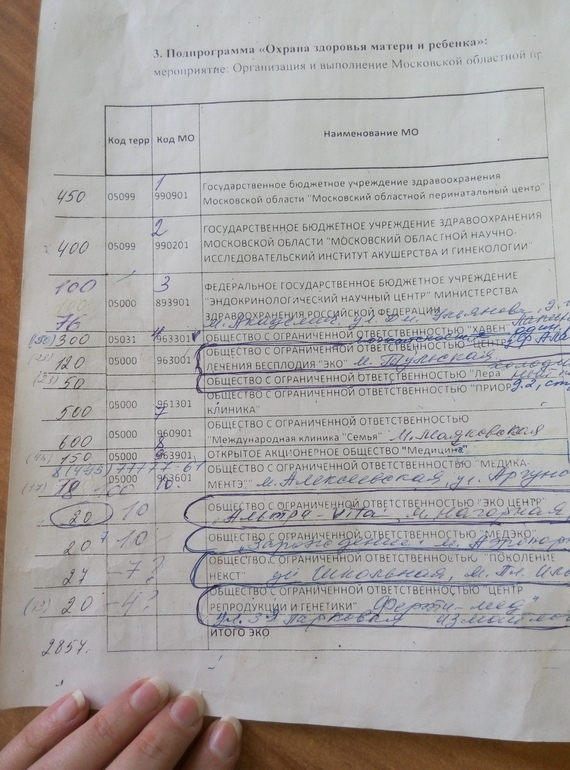 3. Подпрограмма «Охрана здоровья матери и ребенка»:
мероприятие: Организация и выполнение Московской областной пр
Код терр Код МО Наименование МО
450 05099 1 990901 Государственное бюджетное учреждение здравоохранения
Московской области "Московский областной перинатальный центр"
400 05099 2 990201 ГОСУДАРСТВЕННОЕ БЮДЖЕТНОЕ УЧРЕЖДЕНИЕ ЗДРАВООХРАНЕНИЯ
МОСКОВСКОЙ ОБЛАСТИ "МОСКОВСКИЙ ОБЛАСТНОЙ НАУЧНО-
ИССЛЕДОВАТЕЛЬСКИЙ ИНСТИТУТ АКУШЕРСТВА И ГИНЕКОЛОГИИ"
100 3 ФЕДЕРАЛЬНОЕ ГОСУДАРСТВЕННОЕ БЮДЖЕТНОЕ УЧРЕЖДЕНИЕ
05000 893901 "ЭНДОКРИНОЛОГИЧЕСКИЙ НАУЧНЫЙ ЦЕНТР" МИНИСТЕРСТВА
76 ЗДРАВООХРАНЕНИЯ РОССИЙСКОЙ ФЕДЕРАЦИИ
м. Академич ул. Дм. Ульянова
300 05031 963301 ОБЩЕСТВО С ОГРАНИЧЕННОЙ ОТВЕТСТВЕННОСТЬЮ "ХАВЕН"
120 05000 963001 ОБЩЕСТВО С ОГРАНИЧЕННОЙ ОТВЕТСТВЕННОСТЬЮ "ЦЕНТР
ЛЕЧЕНИЯ БЕСПЛОДИЯ "ЭКО" м. Тульская
50 ОБЩЕСТВО С ОГРАНИЧЕННОЙ ОТВЕТСТВЕННОСТЬЮ "Лера"
500 05000 961301 ОБЩЕСТВО С ОГРАНИЧЕННОЙ ОТВЕТСТВЕННОСТЬЮ "ПРИОР
7 КЛИНИКА"
600 05000 960901 ОБЩЕСТВО С ОГРАНИЧЕННОЙ ОТВЕТСТВЕННОСТЬЮ
8 "Международная клиника "Семья" м. Маяковская
150 05000 963901 ОТКРЫТОЕ АКЦИОНЕРНОЕ ОБЩЕСТВО "Медицина"
18 10. ОБЩЕСТВО С ОГРАНИЧЕННОЙ ОТВЕТСТВЕННОСТЬЮ "МЕДИКА-
МЕНТЭ" м. Алексеевская, ул.
20 10 ОБЩЕСТВО С ОГРАНИЧЕННОЙ ОТВЕТСТВЕННОСТЬЮ "ЭКО ЦЕНТР"
м. Нагорная
20 10 ОБЩЕСТВО С ОГРАНИЧЕННОЙ ОТВЕТСТВЕННОСТЬЮ "МЕДЭКО"
Зарождение м.
27 7? ОБЩЕСТВО С ОГРАНИЧЕННОЙ ОТВЕТСТВЕННОСТЬЮ "ПОКОЛЕНИЕ
НЕКСТ" ул Школьная, м. Пл. Иль
20 4? ОБЩЕСТВО С ОГРАНИЧЕННОЙ ОТВЕТСТВЕННОСТЬЮ "ЦЕНТР
РЕПРОДУКЦИИ И ГЕНЕТИКИ" Ферти-мед"
ул. 3я Парковая Измайлов
2857. ИТОГО ЭКО